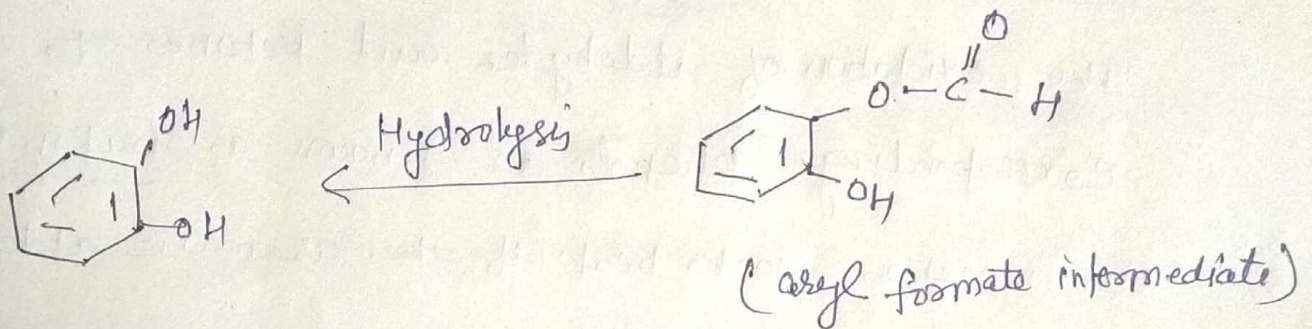 O
O-C-H
OH
Hydrolysis
OH
OH
(aryl formate intermediate)